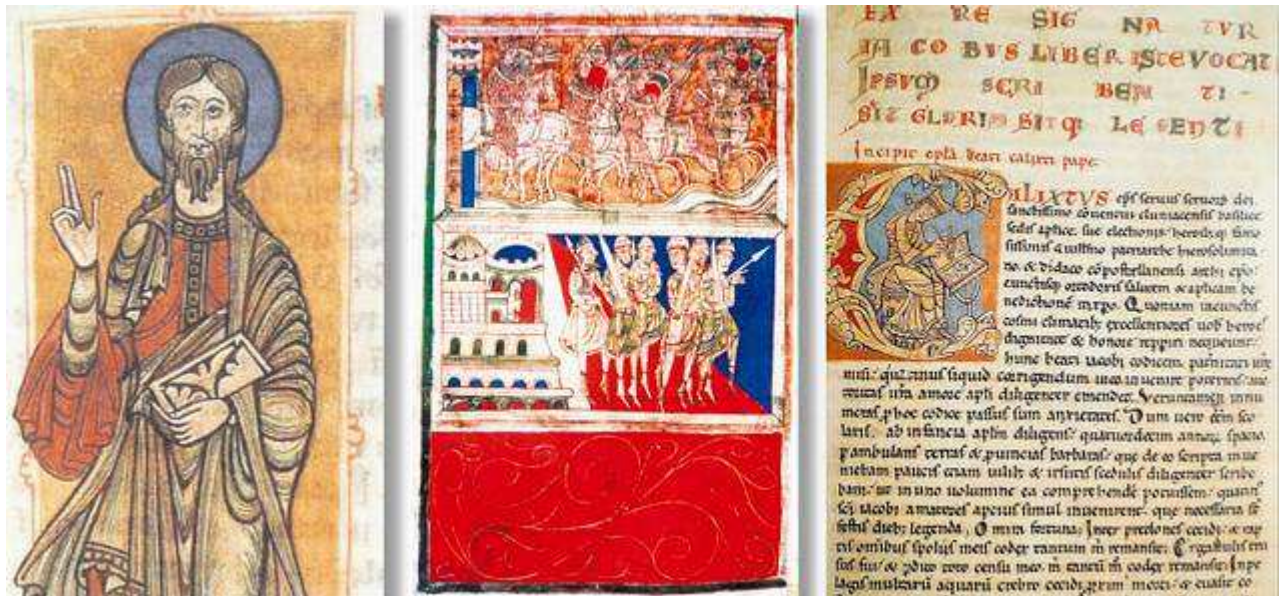 EX RE SIG NA TVR
IA CO BVS LIBER ISTE VOCAT
IPSVM SCRI BEN TI
SIT GLORIA SITQ LE GENTI
Incipit epła beati calixti pape
CALIXTUS epſ ſeruuſ ſeruoꝝ dei
ſanctiſſimo conuentui cluniacenſiſ baſilice
ſediſ aplice, ſue electioniſ
patriarche
no. & didaco cōpoſtellanenſi archi epo
cunctiſq ortodoxiſ ſalutem & aplicam be
nedictionē in xpo. Quoniam in cunctiſ
coſmi climatib; excellentioreſ uob heroeſ
dignitate & honore reppiri nequeunt.
hunc beati iacobi codicem
ſiquid corrigendum in eo inuenire
amore apli diligenter emendet. Veruntamen innu
meraſ p hoc codice paſſuſ ſum anxietateſ. Dum uero
lariſ, ab infancia aplm diligenſ quatuordecim annoꝝ ſpacio
pambulanſ terraſ & puinciaſ barbaraſ que de eo ſcripta inue
niebam pauciſ etiam uilib; & irſutiſ ſceduliſ diligenter ſcribe
bam. ut in uno uolumine ea comprehendē potuiſſem quatin
ſci iacobi amatoreſ apciuſ ſimul inuenirent que neceſſaria ſt
feſtiſ dieb; legenda. O mira fortuna. Inter predoneſ cecidi & rap
tiſ omnibuſ ſpoliiſ meiſ codex tantum m remanſit. Ergaſtuliſ
m codex remanſit. Inpe
lagiſ multarū aquarū crebro cecidi morti & euaſit co